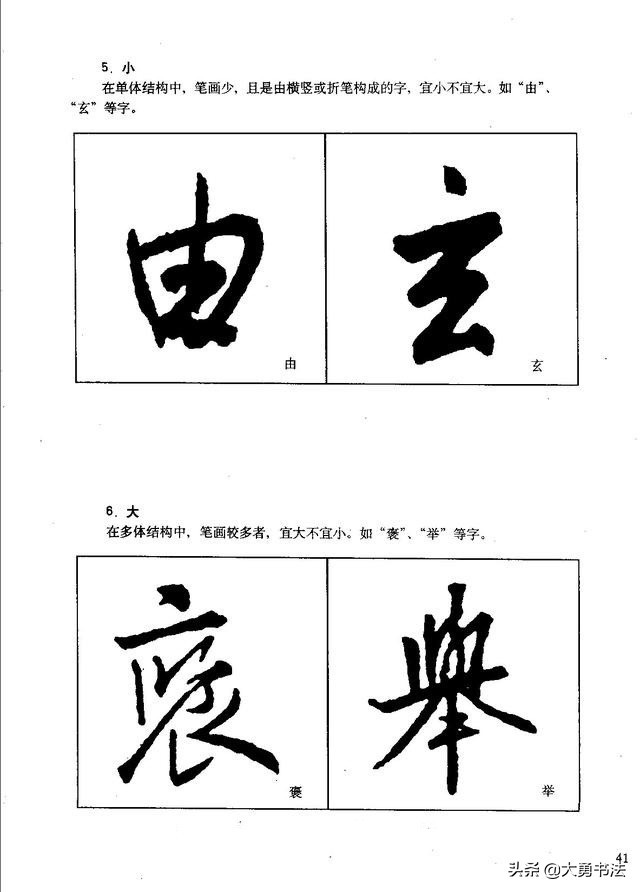 5．小
在单体结构中，笔画少，且是由横竖或折笔构成的字，宜小不宜大。如“由”、
“玄”等字。
由 玄
由 玄
6．大
在多体结构中，笔画较多者，宜大不宜小。如“褒”、“举”等字。
褒 舉
褒 举
41
头条@大勇书法